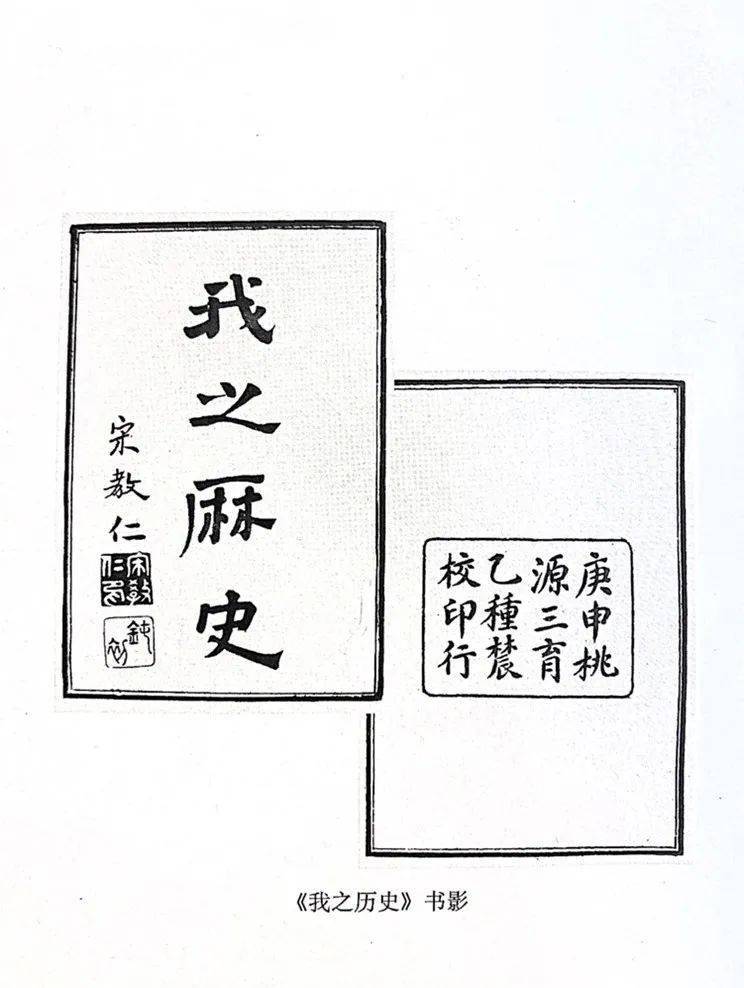 我之厤史
宋教仁
宋教
仁印
鈍初
庚申桃
源三育
乙種辳
校印行
《我之历史》书影